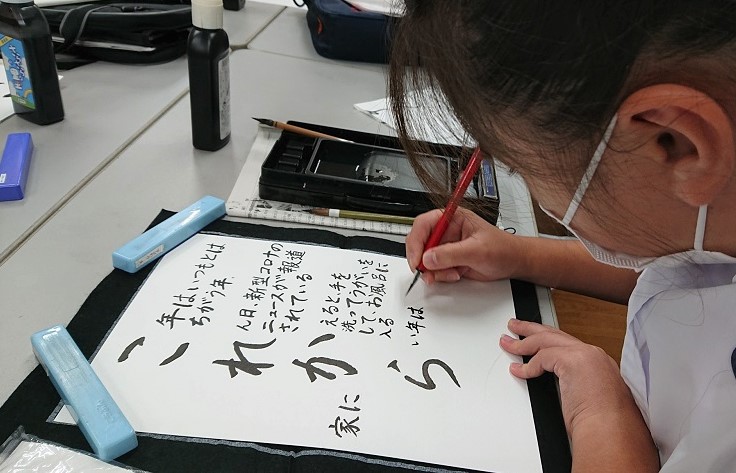 こ年はいつもとは
ちがう年
れん日、新型コロナの
ニュースが報道
されている
家にかえると手を
洗ってうがいを
して、お風呂に
入る
らい年は